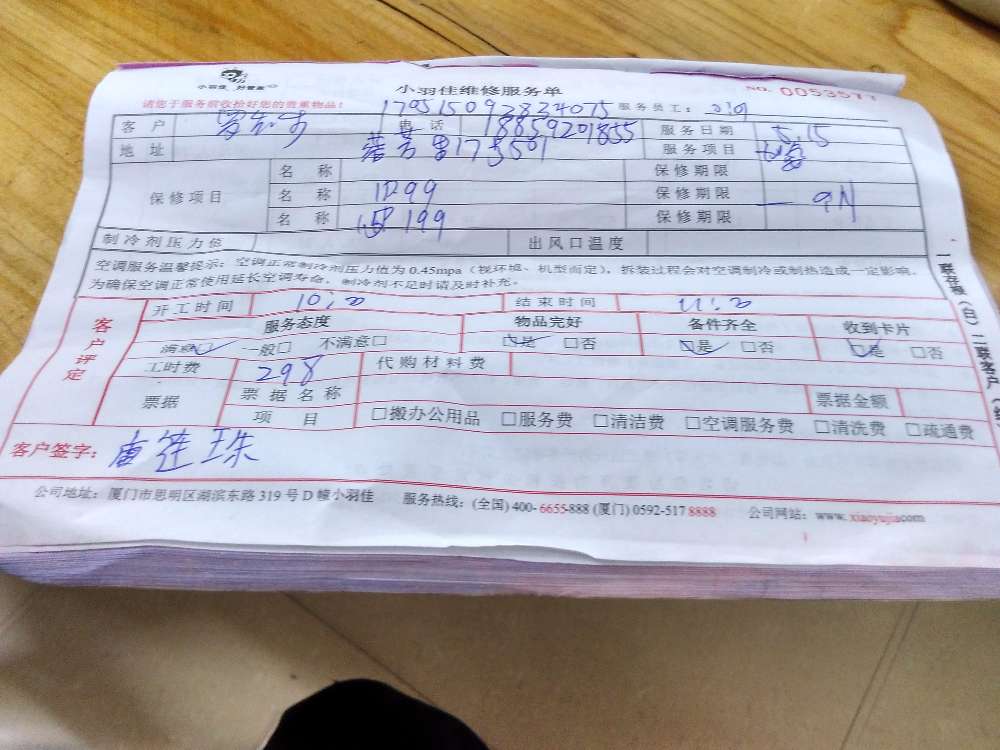 小羽佳 好管家
小羽佳维修服务单
NO. 0053577
请您于服务前收捡好您的贵重物品!
170515092824075
服务员工:
客户
电话 18859201855
服务日期 5.15
地址 175501
服务项目
保修项目
名称
保修期限
名称 1D99
保修期限
名称 199
保修期限
制冷剂压力值
出风口温度
空调服务温馨提示:空调正常制冷剂压力值为 0.45mpa(视环境、机型而定),拆装过程会对空调制冷或制热造成一定影响,
为确保空调正常使用延长空调寿命,制冷剂不足时请及时补充。
客户评定
开工时间 10:20
结束时间 11:20
服务态度 物品完好 备件齐全 收到卡片
满意□ 一般□ 不满意□ □是 □否 □是 □否 □是 □否
工时费 298 代购材料费
票据 票据名称 票据金额
项目 □搬办公用品 □服务费 □清洁费 □空调服务费 □清洗费 □疏通费
客户签字: 唐莲珠
公司地址:厦门市思明区湖滨东路 319 号 D 幢小羽佳 服务热线:(全国) 400-6655-888 (厦门) 0592-517 8888 公司网站:www.xiaoyujia.com
一联存根(白)二联客户